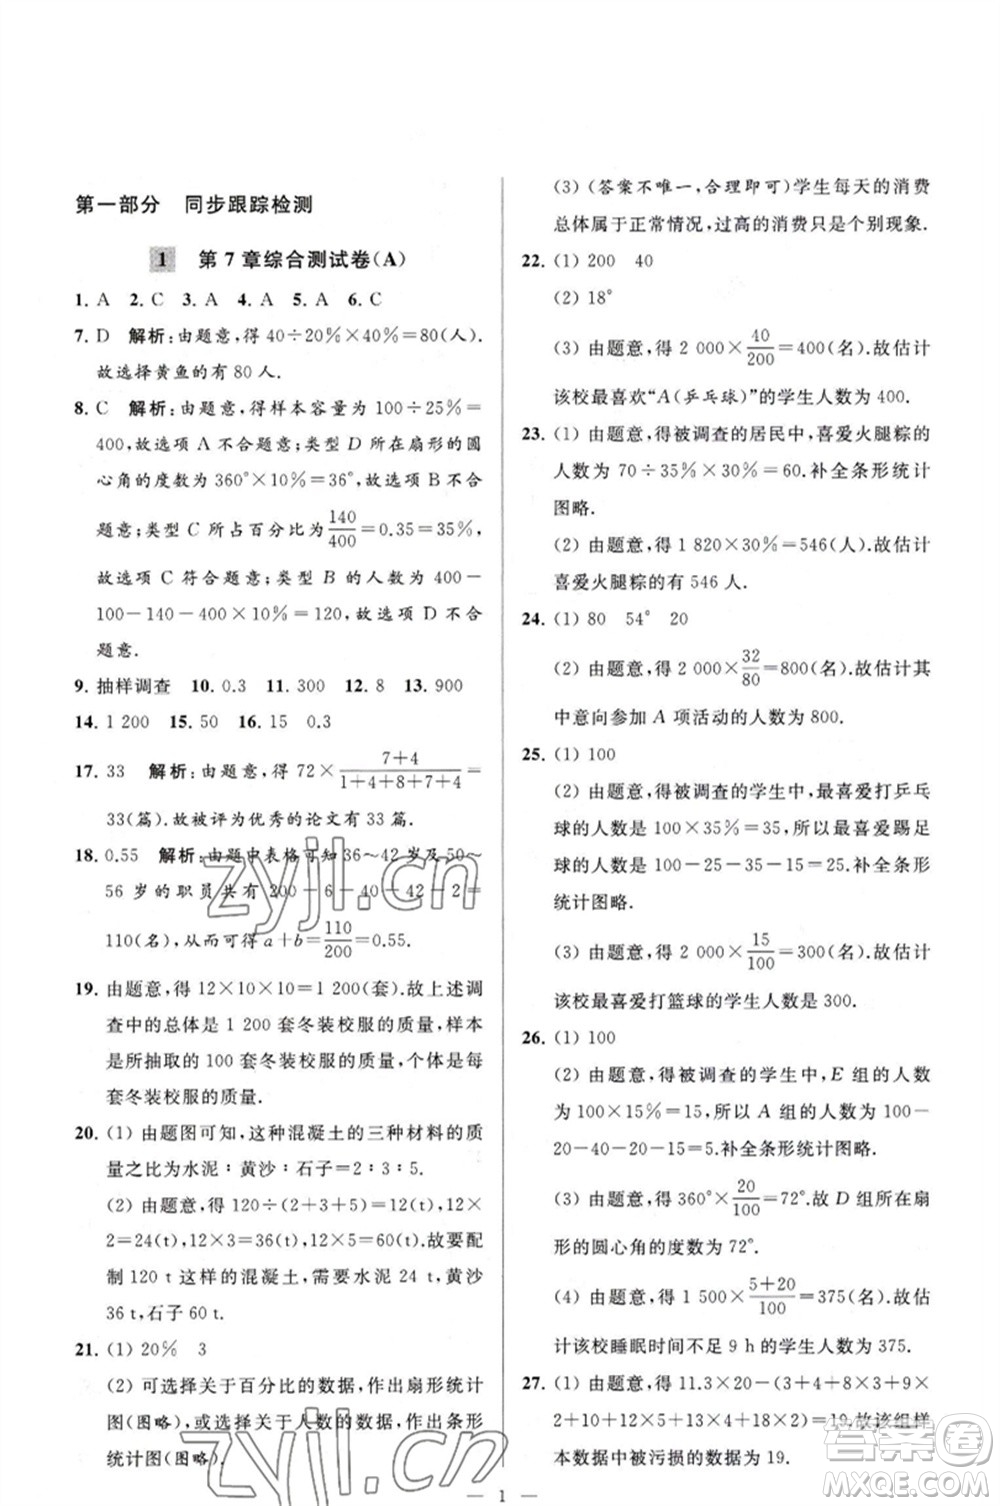 第一部分　同步跟踪检测
1　第7章综合测试卷(A)
1. A　2. C　3. A　4. A　5. A　6. C
7. D　解析:由题意,得 40÷20%×40%=80(人).
故选择黄鱼的有 80 人.
8. C　解析:由题意,得样本容量为 100÷25%=
400,故选项 A 不合题意;类型 D 所在扇形的圆
心角的度数为 360°×10%=36°,故选项 B 不合
题意;类型 C 所占百分比为 140/400=0.35=35%,
故选项 C 符合题意;类型 B 的人数为 400-
100-140-400×10%=120,故选项 D 不合
题意.
9. 抽样调查　10. 0.3　11. 300　12. 8　13. 900
14. 1 200　15. 50　16. 15　0.3
17. 33　解析:由题意,得 72×(7+4)/(1+4+8+7+4)=
33(篇).故被评为优秀的论文有 33 篇.
18. 0.55　解析:由题中表格可知 36～42 岁及 50～
56 岁的职员共有 200-6-40-42-2=
110(名),从而可得 a+b=110/200=0.55.
19. 由题意,得 12×10×10=1 200(套).故上述调
查中的总体是 1 200 套冬装校服的质量,样本
是所抽取的 100 套冬装校服的质量,个体是每
套冬装校服的质量.
20. (1) 由题图可知,这种混凝土的三种材料的质
量之比为水泥∶黄沙∶石子=2∶3∶5.
(2) 由题意,得 120÷(2+3+5)=12(t),12×
2=24(t),12×3=36(t),12×5=60(t).故要配
制 120 t 这样的混凝土,需要水泥 24 t,黄沙
36 t,石子 60 t.
21. (1) 20%　3
(2) 可选择关于百分比的数据,作出扇形统计
图(图略),或选择关于人数的数据,作出条形
统计图(图略).
(3) (答案不唯一,合理即可)学生每天的消费
总体属于正常情况,过高的消费只是个别现象.
22. (1) 200　40
(2) 18°
(3) 由题意,得 2 000×40/200=400(名).故估计
该校最喜欢“A(乒乓球)”的学生人数为 400.
23. (1) 由题意,得被调查的居民中,喜爱火腿粽的
人数为 70÷35%×30%=60.补全条形统计
图略.
(2) 由题意,得 1 820×30%=546(人).故估计
喜爱火腿粽的有 546 人.
24. (1) 80　54°　20
(2) 由题意,得 2 000×32/80=800(名).故估计其
中意向参加 A 项活动的人数为 800.
25. (1) 100
(2) 由题意,得被调查的学生中,最喜爱打乒乓
球的人数是 100×35%=35,所以最喜爱踢足
球的人数是 100-25-35-15=25.补全条形
统计图略.
(3) 由题意,得 2 000×15/100=300(名).故估计
该校最喜爱打篮球的学生人数是 300.
26. (1) 100
(2) 由题意,得被调查的学生中,E 组的人数
为 100×15%=15,所以 A 组的人数为 100-
20-40-20-15=5.补全条形统计图略.
(3) 由题意,得 360°×20/100=72°.故 D 组所在扇
形的圆心角的度数为 72°.
(4) 由题意,得 1 500×(5+20)/100=375(名).故估
计该校睡眠时间不足 9 h 的学生人数为 375.
27. (1) 由题意,得 11.3×20-(3+4×3+9×
2+10+5×2+13×4+17×2+68)=19.故该组样
本数据中被污损的数据为 19.
zyjl.cn
zyjl.cn
答案圈
MXQE.COM
1